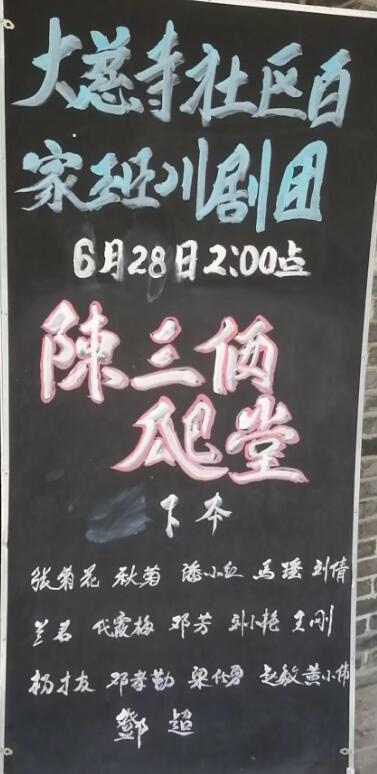 大慈寺社区百
家班川剧团
6月28日2:00点
陳三俩
爬堂
下本
张菊花 秋菊 潘小红 马瑶 刘倩
兰君 代霞梅 邓芳 孙小艳 王刚
杨才友 邓孝勤 梁仕勇 赵敏 黄小伟
鄧超